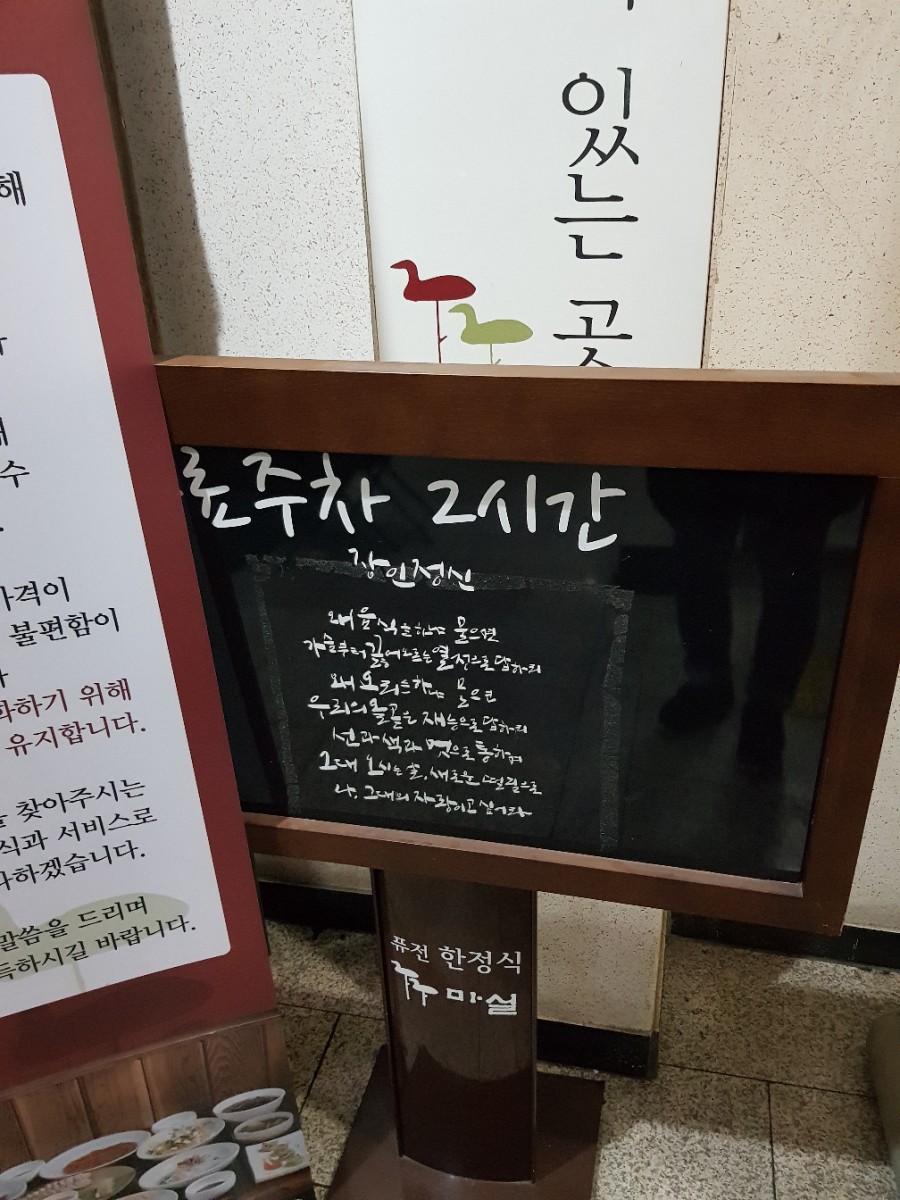 이 있는 곳
해
수
가격이
불편함이
화하기 위해
유지합니다.
찾아주시는
식과 서비스로
다하겠습니다.
말씀을 드리며
득하시길 바랍니다.
료주차 2시간
장인정신
왜 음식을 하냐 물으면
가슴부터 끓어오르는 열정으로 답하리
왜 요리를 하냐 물으면
우리의 올곧은 재능으로 답하리
선과 색과 멋으로 통하며
그대 오시는 날, 새로운 떨림으로
나, 그대의 자랑이고 싶어라
퓨전 한정식
마실